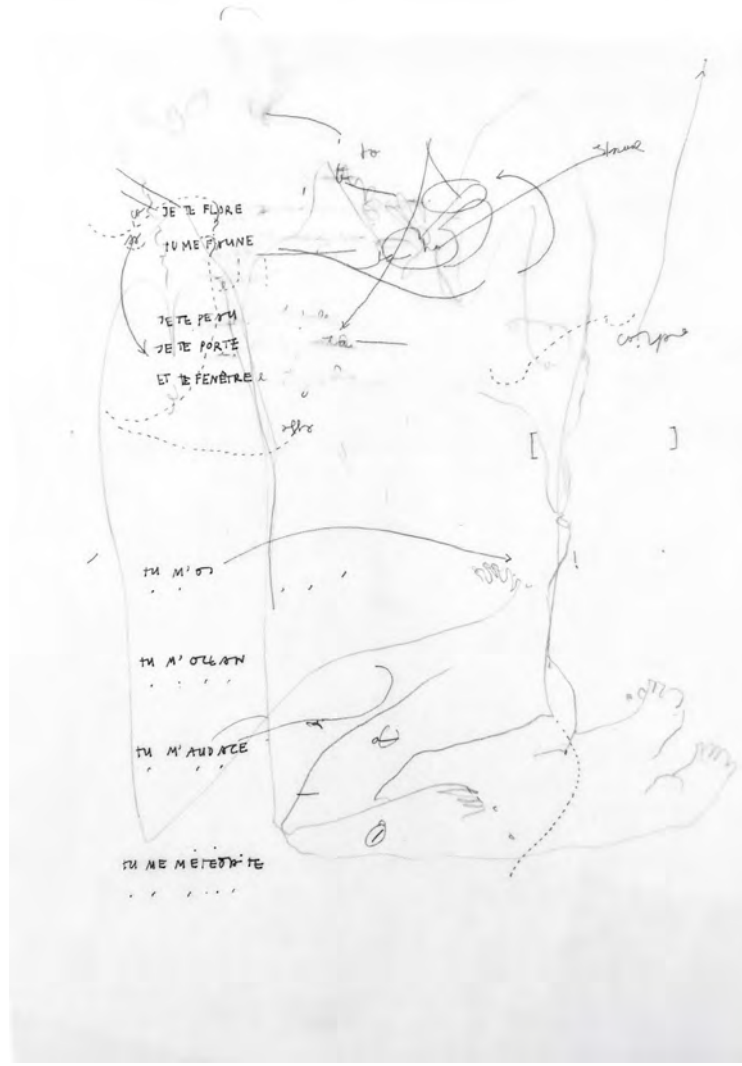 JE TE FLORE
TU ME FAUNE
JE TE PEAU
JE TE PORTE
ET TE FENÊTRE
TU M'OS
TU M'OCEAN
TU M'AUDACE
TU ME MÉTÉORITE
corps